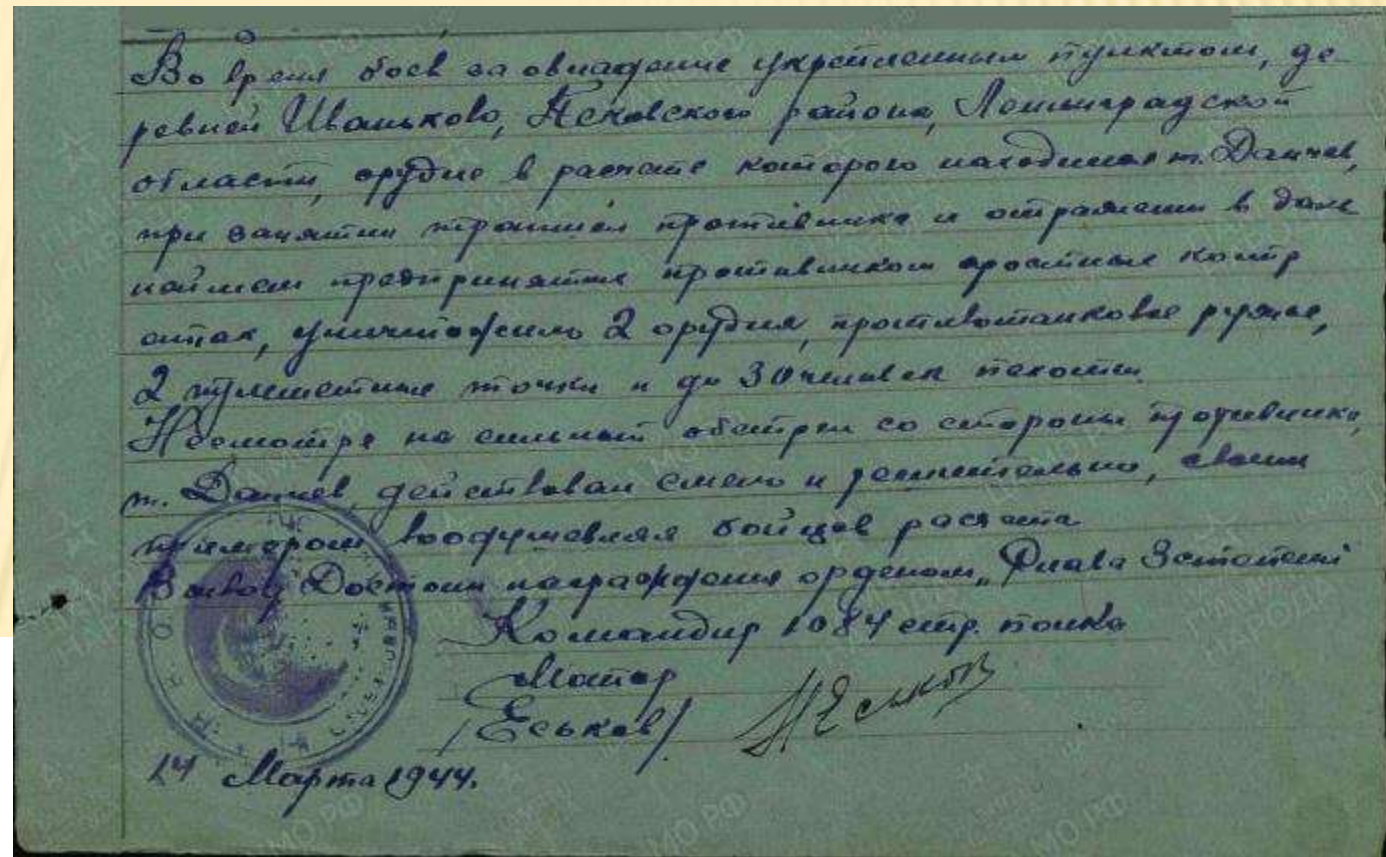 Во время боев за овладение укрепленным пунктом, де
ревней Иваньково, Псковского района, Ленинградской
области, орудие в расчете которого находился т. Данчев,
при занятии траншей противника и отражении в даль
нейшем предпринятых противником яростных контр
атак, уничтожило 2 орудия, противотанковое ружье,
2 пулеметные точки и до 30 человек пехоты.
Несмотря на сильный обстрел со стороны противника,
т. Данчев, действовал смело и решительно, своим
примером воодушевляя бойцов расчета.
Вывод: Достоин награждения орденом „Слава 3 степени"
Командир 1084 стр. полка
Майор
/Еськов/ Еськов
14 Марта 1944.